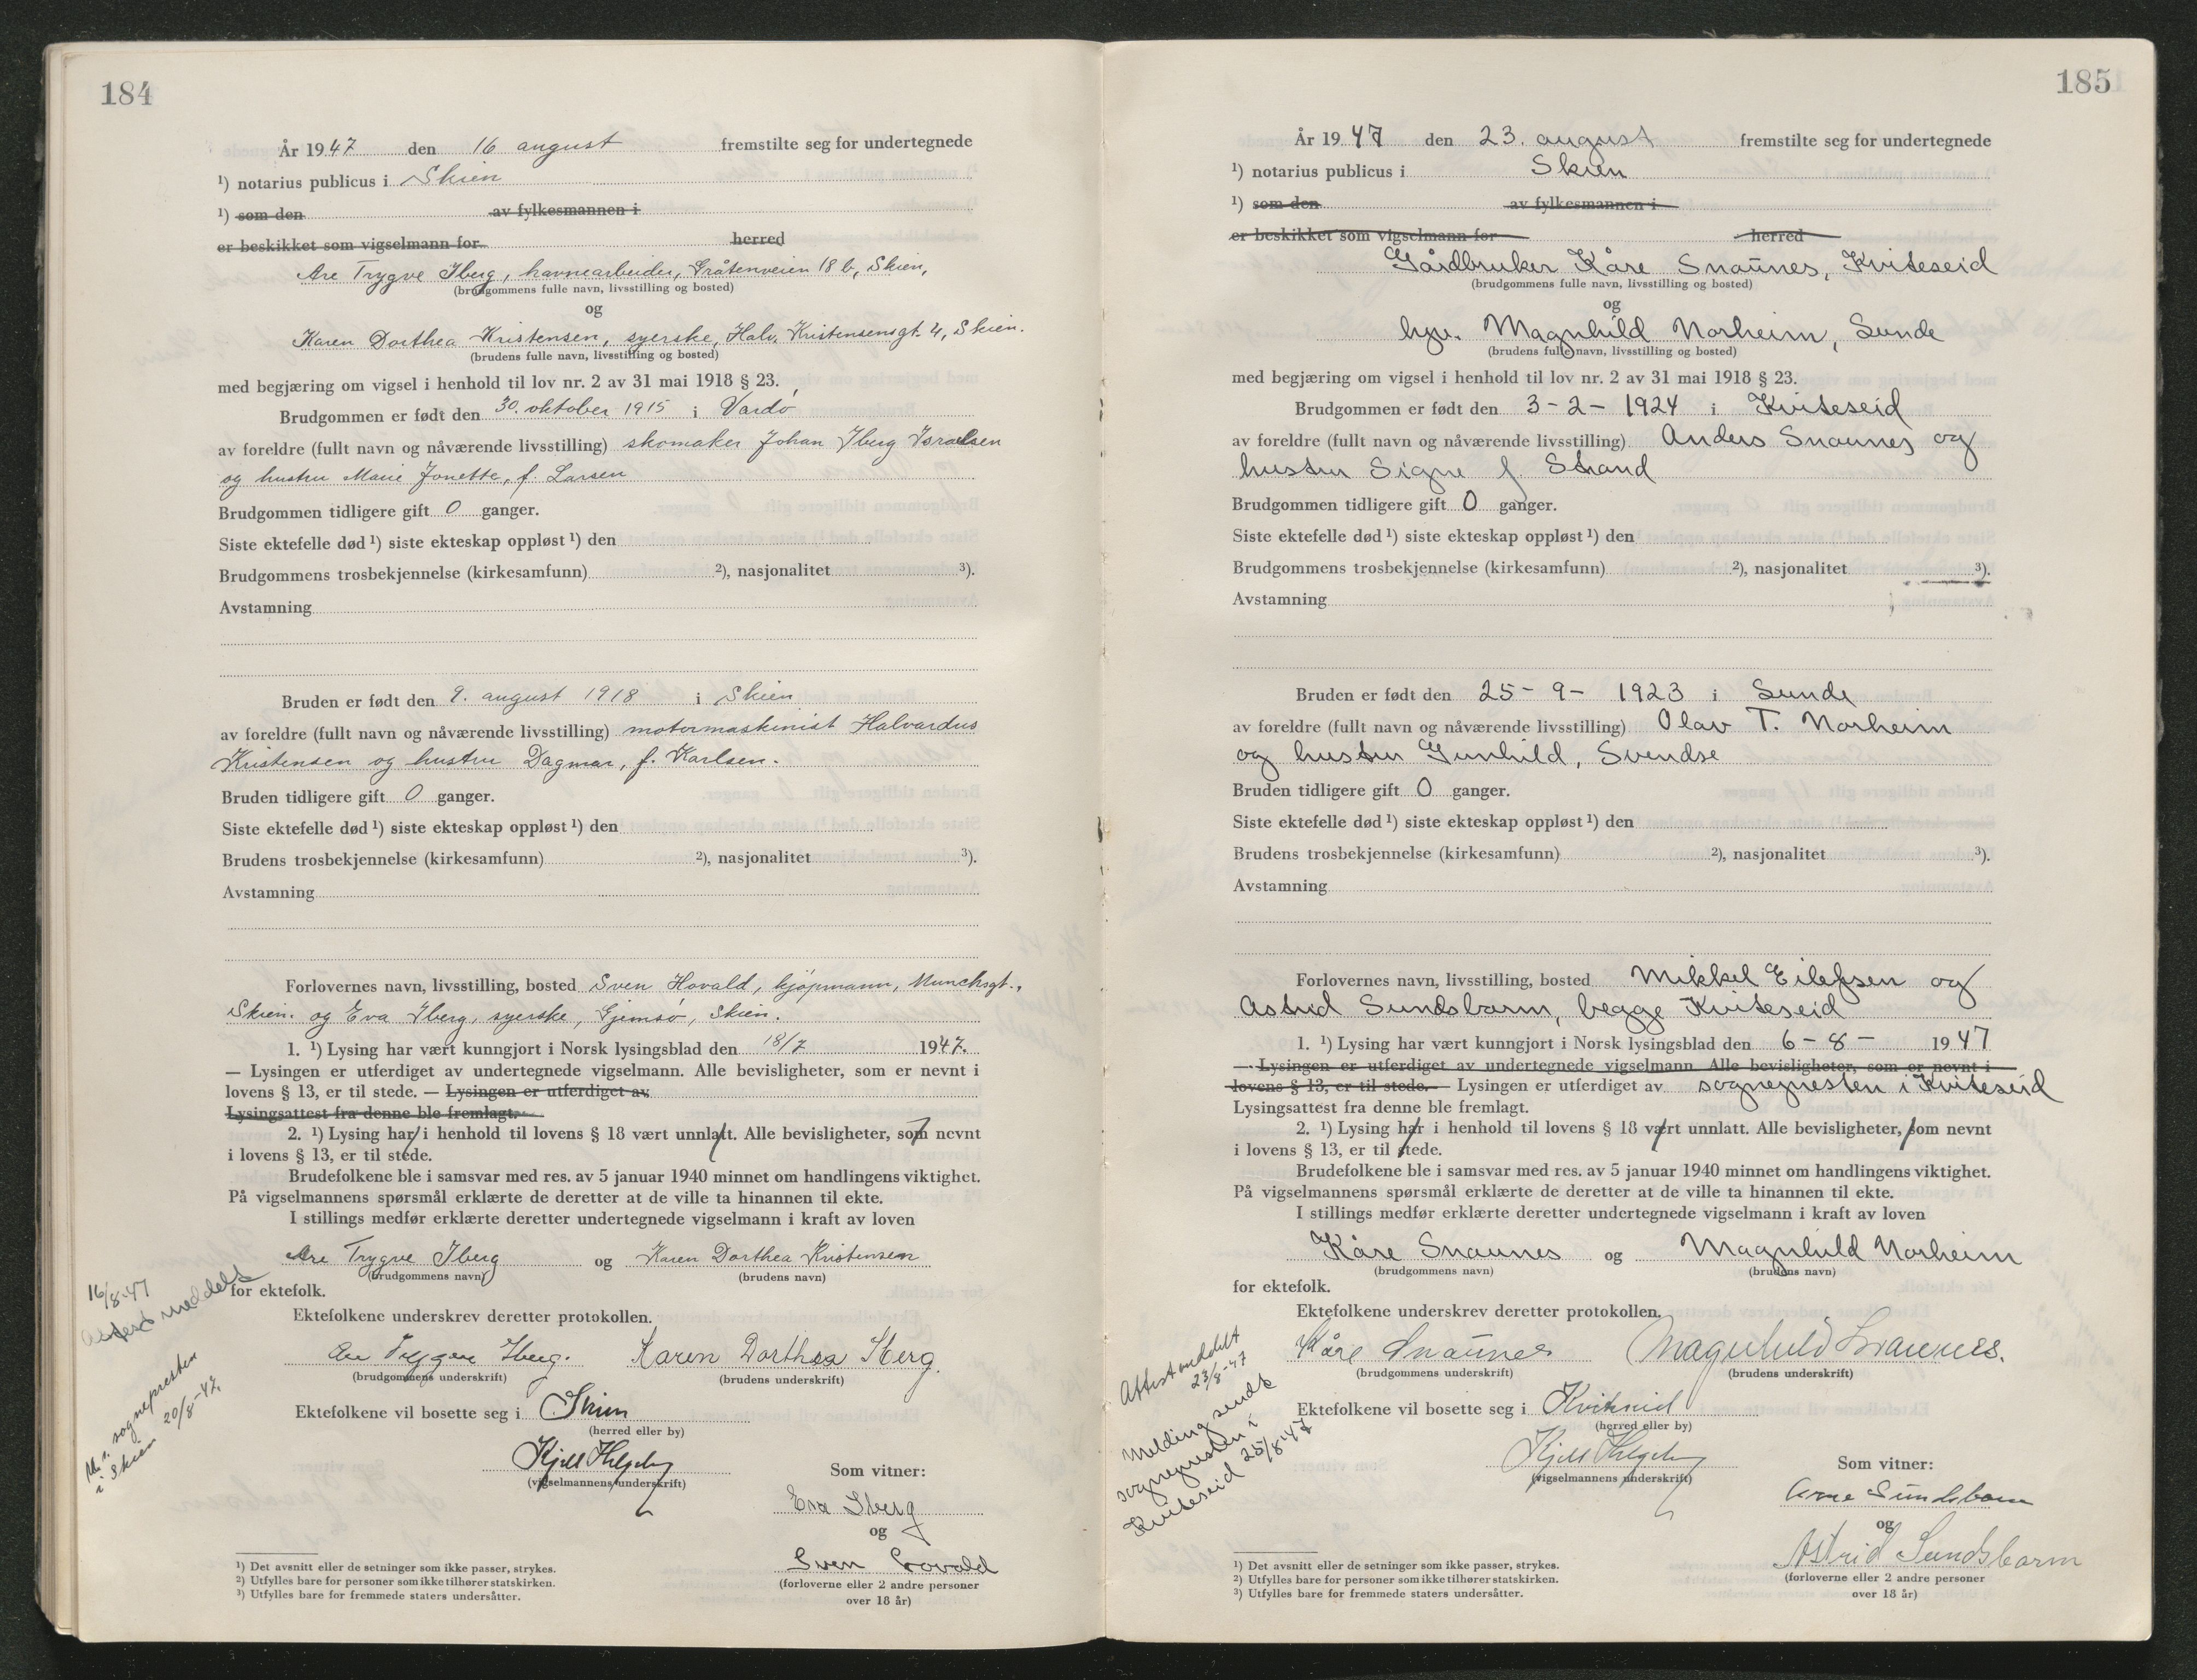 184
År 1947 den 16 august fremstilte seg for undertegnede
¹) notarius publicus i Skien
¹) som den av fylkesmannen i
er beskikket som vigselmann for herred
Are Trygve Iberg, havnearbeider, Gråtenveien 18 b, Skien,
(brudgommens fulle navn, livsstilling og bosted)
og
Karen Dorthea Kristensen, syerske, Halv. Kristensensgt. 4, Skien.
(brudens fulle navn, livsstilling og bosted)
med begjæring om vigsel i henhold til lov nr. 2 av 31 mai 1918 § 23.
Brudgommen er født den 30. oktober 1915 i Vardö
av foreldre (fullt navn og nåværende livsstilling) skomaker Johan Iberg Israelsen
og hustru Marie Jonette, f. Larsen
Brudgommen tidligere gift 0 ganger.
Siste ektefelle død ¹) siste ekteskap oppløst ¹) den
Brudgommens trosbekjennelse (kirkesamfunn) ²), nasjonalitet ³).
Avstamning
Bruden er født den 9. august 1918 i Skien
av foreldre (fullt navn og nåværende livsstilling) motormaskinist Halvardus
Kristensen og hustru Dagmar, f. Karlsen.
Bruden tidligere gift 0 ganger.
Siste ektefelle død ¹) siste ekteskap oppløst ¹) den
Brudens trosbekjennelse (kirkesamfunn) ²), nasjonalitet ³).
Avstamning
Forlovernes navn, livsstilling, bosted Sven Hovald, kjöpmann, Munchsgt.,
Skien. og Eva Iberg, syerske, Gjemsö, Skien.
1. ¹) Lysing har vært kunngjort i Norsk lysingsblad den 18/7 1947.
— Lysingen er utferdiget av undertegnede vigselmann. Alle bevisligheter, som er nevnt i
lovens § 13, er til stede. — Lysingen er utferdiget av
Lysingsattest fra denne ble fremlagt.
2. ¹) Lysing har i henhold til lovens § 18 vært unnlatt. Alle bevisligheter, som nevnt
i lovens § 13, er til stede.
Brudefolkene ble i samsvar med res. av 5 januar 1940 minnet om handlingens viktighet.
På vigselmannens spørsmål erklærte de deretter at de ville ta hinannen til ekte.
I stillings medfør erklærte deretter undertegnede vigselmann i kraft av loven
Are Trygve Iberg og Karen Dorthea Kristensen
(brudgommens navn) (brudens navn)
for ektefolk.
16/8-47
Attest meddelt
Ektefolkene underskrev deretter protokollen.
Are Trygve Iberg. Karen Dorthea Iberg.
(brudgommens underskrift) (brudens underskrift)
sognepresten
i Skien 20/8-47.
Ektefolkene vil bosette seg i Skien
(herred eller by)
Kjell Helgeby
(vigselmannens underskrift)
Som vitner:
Eva Iberg
og
Sven Hovald
(forloverne eller 2 andre personer
over 18 år)
¹) Det avsnitt eller de setninger som ikke passer, strykes.
²) Utfylles bare for personer som ikke tilhører statskirken.
³) Utfylles bare for fremmede staters undersåtter.
185
År 1947 den 23. august fremstilte seg for undertegnede
¹) notarius publicus i Skien
¹) som den av fylkesmannen i
er beskikket som vigselmann for herred
Gårdbruker Kåre Snaünes, Kviteseid
(brudgommens fulle navn, livsstilling og bosted)
og
hgv. Magnhild Norheim, Sunde
(brudens fulle navn, livsstilling og bosted)
med begjæring om vigsel i henhold til lov nr. 2 av 31 mai 1918 § 23.
Brudgommen er født den 3-2-1924 i Kviteseid
av foreldre (fullt navn og nåværende livsstilling) Anders Snaunes og
hustru Signe f. Strand
Brudgommen tidligere gift 0 ganger.
Siste ektefelle død ¹) siste ekteskap oppløst ¹) den
Brudgommens trosbekjennelse (kirkesamfunn) ²), nasjonalitet ³).
Avstamning
Bruden er født den 25-9-1923 i Sunde
av foreldre (fullt navn og nåværende livsstilling) Olav T. Norheim
og hustru Gunhild, Svendse
Bruden tidligere gift 0 ganger.
Siste ektefelle død ¹) siste ekteskap oppløst ¹) den
Brudens trosbekjennelse (kirkesamfunn) ²), nasjonalitet ³).
Avstamning
Forlovernes navn, livsstilling, bosted Mikkel Eilefsen og
Astrid Sundsbarm, begge Kviteseid
1. ¹) Lysing har vært kunngjort i Norsk lysingsblad den 6-8- 1947
— Lysingen er utferdiget av undertegnede vigselmann. Alle bevisligheter, som er nevnt i
lovens § 13, er til stede. — Lysingen er utferdiget av sognepresten i Kviteseid
Lysingsattest fra denne ble fremlagt.
2. ¹) Lysing har i henhold til lovens § 18 vært unnlatt. Alle bevisligheter, som nevnt
i lovens § 13, er til stede.
Brudefolkene ble i samsvar med res. av 5 januar 1940 minnet om handlingens viktighet.
På vigselmannens spørsmål erklærte de deretter at de ville ta hinannen til ekte.
I stillings medfør erklærte deretter undertegnede vigselmann i kraft av loven
Kåre Snaunes og Magnhild Norheim
(brudgommens navn) (brudens navn)
for ektefolk.
Ektefolkene underskrev deretter protokollen.
Kåre Snaünes Magnhild Snaunes.
(brudgommens underskrift) (brudens underskrift)
Attest meddelt
23/8-47
Melding sendt
sognepresten i
Kviteseid 25/8-47
Ektefolkene vil bosette seg i Kviteseid
(herred eller by)
Kjell Helgeby
(vigselmannens underskrift)
Som vitner:
Arne Sundsbarm
og
Astrid Sundsbarm
(forloverne eller 2 andre personer
over 18 år)
¹) Det avsnitt eller de setninger som ikke passer, strykes.
²) Utfylles bare for personer som ikke tilhører statskirken.
³) Utfylles bare for fremmede staters undersåtter.